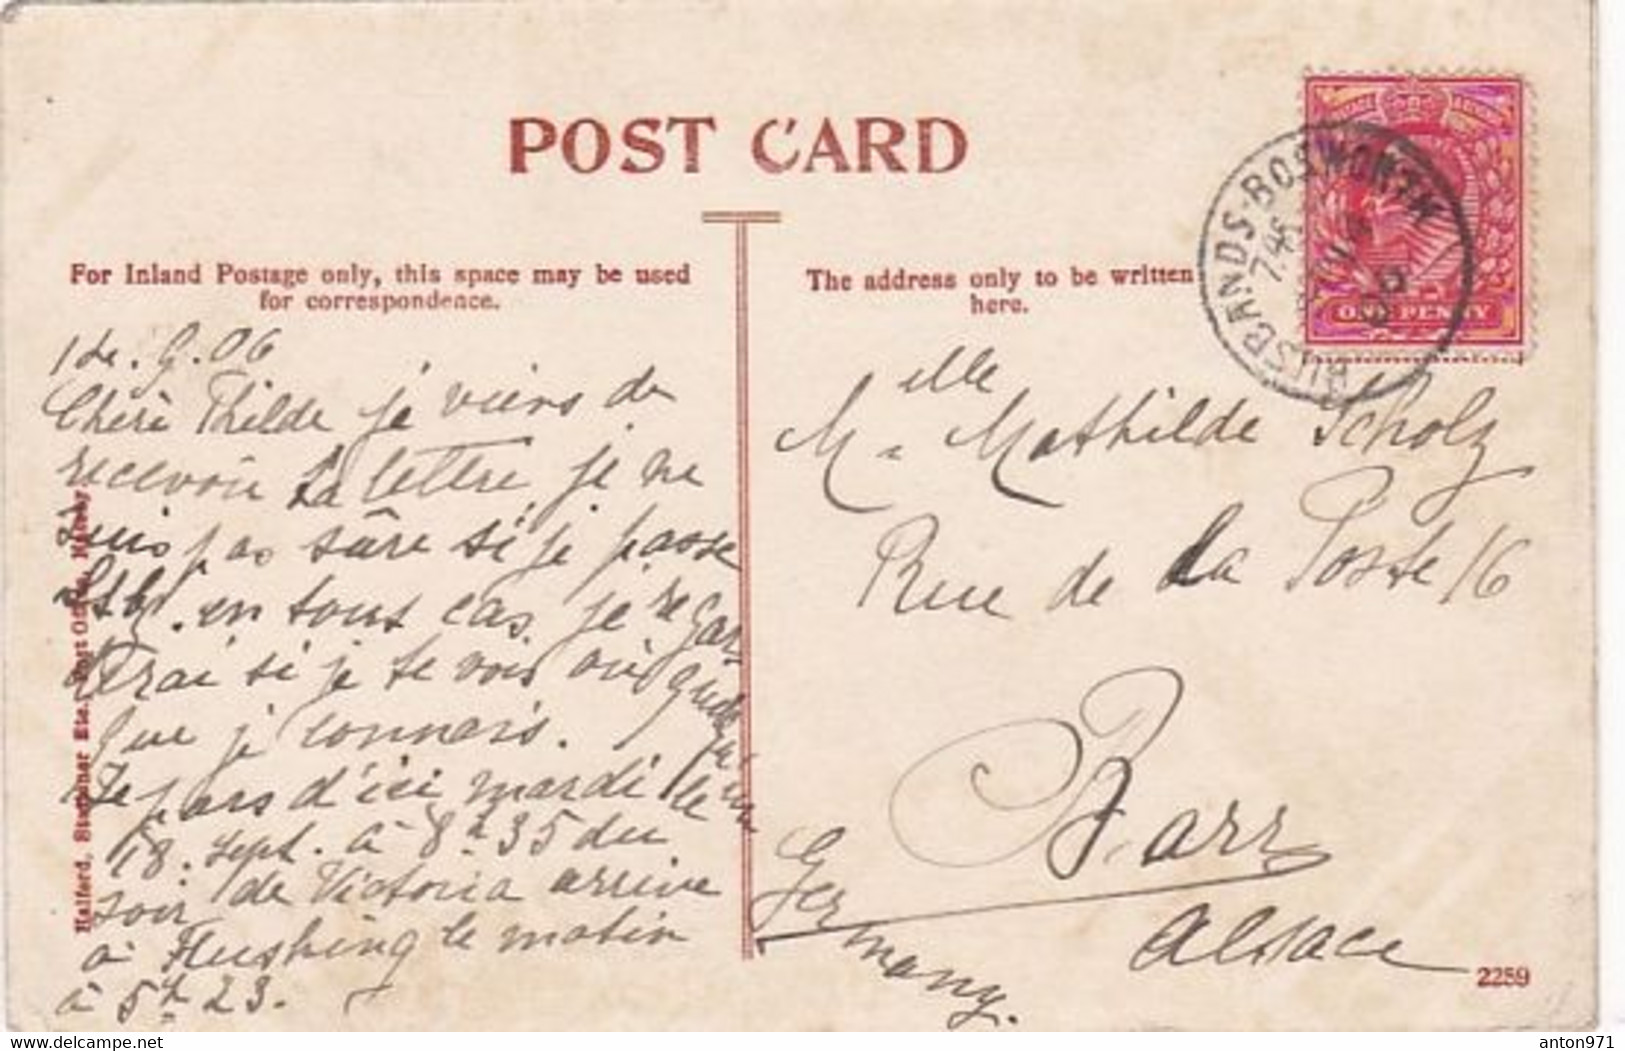 POST CARD
For Inland Postage only, this space may be used
for correspondence.
The address only to be written
here.
HUSBANDS-BOSWORTH
7.45
ONE PENNY
1 de. 9. 06
Chère Thilde je viens de
recevoir ta lettre, je ne
suis pas sûre si je passe
Stbg. en tous cas je regar
derai si je te vois ou quelqu'un
que je connais.
Je pars d'ici mardi le
18. Sept. à 8h 35 du
soir de Victoria arrive
à Flushing le matin
à 5h 23.
Melle Mathilde Scholz
Rue de la Poste 16
Barr
Alsace
Germany.
Halford, Stationer Etc., Post Office, Naseby
2259
anton971
delcampe.net